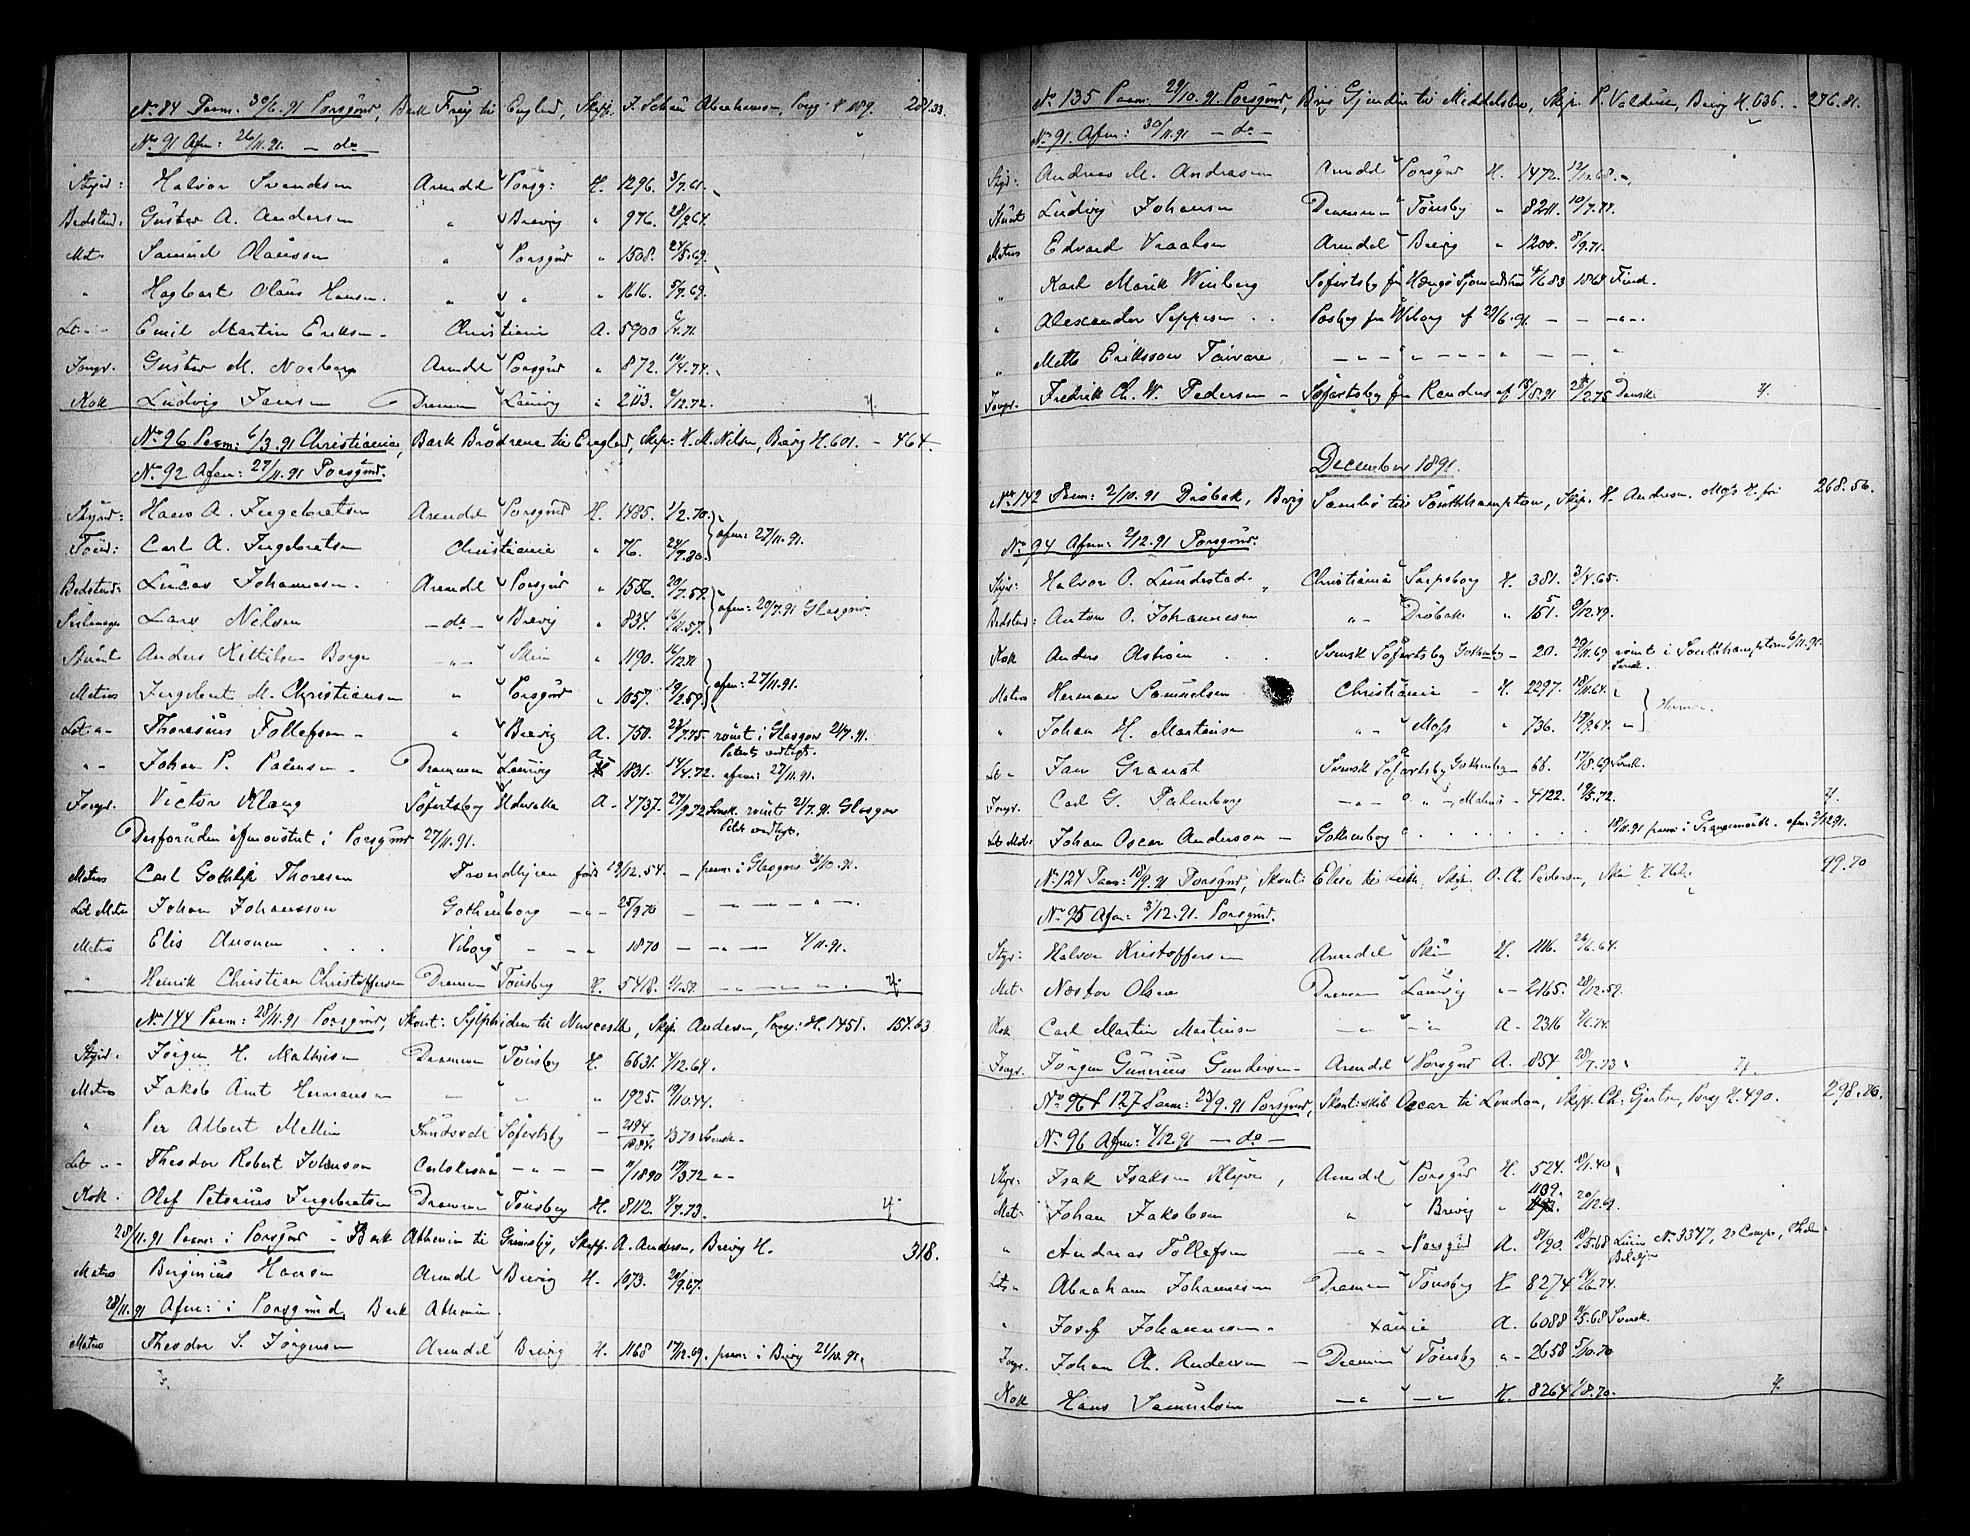 No 84 Paam: 30/6.91 Porsgrund, Bark Freig til England, Skipp. J. Schau Abrahamsen, Porsg: H. 189. 281.33.
No 91 Afm: 26/11.91. — do —
Styrm: Halvor Svendsen Arendal Porsg: H. 1296. 3/7.61.
Bedstmd: Gustav A. Andersen " Brevig " 976. 28/9.64.
Mat. Samuel Olaussen " Porsgrund " 1508. 24/5.69.
" Hagbart Olaus Hansen. " " " 1616. 5/7.69.
Let - " - Emil Martin Eriksen - Christiania A. 5900
Jongm. Gustav M. Norberg Arendal Porsgrund " 872. 10/4.74.
Kok Ludvig Jensen Drammen Laurvig " 2113. 6/12.72. 7.
No 96 Paam: 6/3.91 Christiania, Bark Brødrene til England, Skip: N. M. Nilsen, Brevig H. 601. - 464.
No 92 Afm: 27/11.91 Porsgrund.
Styrm: Hans A. Ingebretsen Arendal Porsgrund H. 1485. 1/2.70. afm: 27/11.91.
Tømd: Carl A. Ingebretsen Christiania " 76.
Bedstmd: Lucas Johannesen. Arendal Porsgrund " 1556. 20/7.59. afm: 20/7.91 Glasgow
Lars Nilsen - do - Brevig " 834. 16/11.57.
Stuert Anders Kittilsen Borge - " - Skien " 1190. 16/12.71
Matros Ingebret M. Christiansen " Porsgrund " 1057. 19/12.69. afm: 27/11.91.
Let - " - Thoresius Tollefsen - " Brevig A. 750. 23/7.75. rømt i Glasgow 21/7.91.
- " - Johan P. Paulsen - Drammen Laurvig A 1831. 14/4.72. afm: 27/11.91.
Jongm. Victor Klang Søfartsby Udevalla A. 4737. 27/9.72 Svensk. rømt 21/7.91 Glasgow
Desforuden afmønstret i Porsgrund 27/11.91.
Matros Carl Gottlip Thoresen Trondhjem født 29/12.54. - paam: i Glasgow 31/10.91.
Let Matr Johan Johansson Gothenborg - " - 25/9.70 - — — " —.
Matros Elis Anonen Viborg - - " 1870 — — " — 4/11.91.
" Henrik Christian Christoffersen Drammen Tønsberg H. 5418. — — — " . 7.
No 144 Paam: 28/11.91 Porsgrund, Skont: Sylphiden til Newcastle, Skip. Andersen, Porsg: H. 1451. 154.63
Styrm. Jørgen H. Mathisen Drammen Tønsberg H. 6631. 4/12.64.
Matros Jakob Amt Hermansen - " " 1925. 19/10.44.
" Per Albert Mellin Sundsvall Søfartsby - 2194/1884 Svensk -
Let " - Theodor Robert Johnson Carlskrona — " — — 1890 17/3.72 " -
Kok. Olaf Petterius Ingebretsen Drammen Tønsberg H. 8112. 9/7.73. 4.
28/11.91 Paam: i Porsgrund - Bark Athenin til Grimsby, Skipp. A. Andersen, Brevig H. 318.
Matros Birginius Hansen Arendal Brevig H. 1073. 20/9.67.
28/11.91 Afm: i Porsgrund, Bark Athenin.
Matros Theodor S. Jørgensen Arendal Brevig H. 1168 17/12.69. paam: i Brevig 21/10.91.
No 135 Paam. 29/10.91. Porsgrund, Brig Gjendin til Middelsbro, Skip. P. Valdin, Brevig H. 636. - 276.81.
No 91. Afm: 30/11.91 — do —
Styrm: Andreas M. Andreasen Arendal Porsgrund H. 1472. 12/11.68.
Stuert Ludvig Johansen Drammen Tønsberg " 8211. 10/7.77.
Matros Edvard Vraalsen Arendal Brevig " 1200. 8/9.71.
" Karl Marik Winberg Søfartsby fra Hangø Sjømandshus 4/6 83 1868 Finsk.
" Alexander Seppinen . . Pasby fra Wiborg af 29/6.91. — — — " —.
" Matts Eriksson Taivare — " — " — — — — "
Jongm. Fredrik Ch. W. Pedersen - Søfartsby fra Randers af 15/8.91 28/2.75 Dansk. 7.
December 1891.
No 142 Paam: 2/10.91 Drøbak, Brig Sambo til Southhampton, Skip. H. Andresen, Moss H. fri 268.56.
No 94 Afm: 2/12.91 Porsgrund.
Styrm: Halvor O. Lundestad. Christiania Sarpsborg H. 381. 3/1.65.
Bedstmd: Anton O. Johannesen - " - Drøbak " 151. 5 9/12.49.
Kok Anders Astrøm . . Svensk Søfartsby Gothenborg - 20. 20/11.69 rømt i Southhampton 6/11.91.
Matros Herman Samuelsen Christiania - H. 2297. 18/11.64.
" Johan H. Martinsen - " Moss " 736. 19/9.64.
Let " Jan Granat Svensk Søfartsby Gothenborg — 66. 17/8.69 Svensk.
Jongm. Carl G. Palenborg — " — " " Malmø - 4122. 19/5.72. 7.
Let Matr: Johan Oscar Anderson — Gothenborg " . . . . . . 18/11.91 paam: i Grangemouth. afm: 2/12.91.
No 124 Paam: 18/9.91 Porsgrund, Skont: Elise til Leith, Skip. O. A. Pedersen, Skien H. 762. 99.70
No 95 Afm: 3/12.91. Porsgrund.
Styrm: Halvor Kristoffersen Arendal Skien H. 1116. 26/6.64.
Mat. Næstor Olsen Drammen Laurvig " - 2165. 28/12.59.
Kok Carl Martin Martinsen — " — - " A. 2316
Jongm. Jørgen Gunerius Gundersen - Arendal Porsgrund A. 854 28/7.73 7.
No 127 Paam: 23/9.91 Porsgrund, Skont: skib Oscar til London, Skipp. Ch. Gjertsen, Porsg H. 490. 298.86.
No 96 Afm: 4/12.91 — do —
Styrm. Isak Isaksen Klyve, Arendal Porsgrund H. 524. 18/1.40
Mat. Johan Jakobsen " Brevig " 1139. 20/12.69.
" Andreas Tollefsen — " — Porsgrund A. 8/90. 18/5.68 Linie No 3347, 2 Comp,
Let " Abraham Johannesen Drammen Tønsberg H 8274
" Josef Johannesen. Xania A. 6088 11/5.68 Svensk.
Jongm. Johan Ch. Andersen — Drammen Tønsberg " - 2658 5/10.70
Kok Hans Samuelsen — " — — " H. 8264 1/8.70. 7.